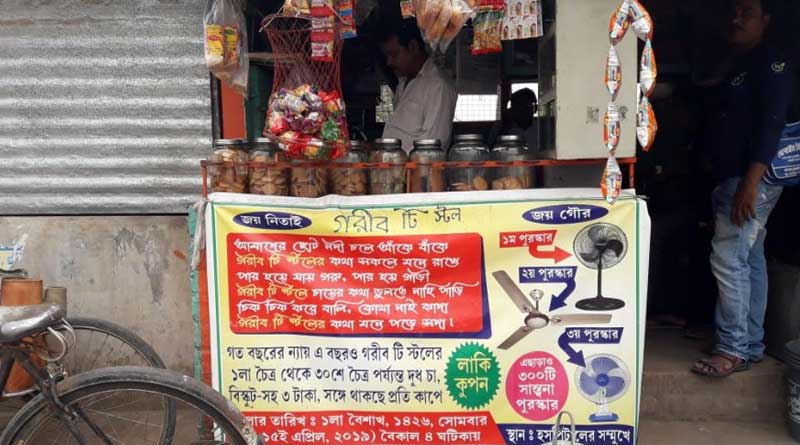 জয় নিতাই
গরীব টি স্টল
জয় গৌর
আমাদের ছোট নদী চলে আঁকে বাঁকে
গরীব টি স্টলের কথা সকলে মনে রাখে
পার হয়ে যায় গরু, পার হয় গাড়ী
গরীব টি স্টলে চায়ের কথা ভুলতে নাহি পাড়ি
চিক চিক করে বালি, কোথা নাই কাদা
গরীব টি স্টলের কথা মনে পড়ে সদা।
১ম পুরস্কার
২য় পুরস্কার
৩য় পুরস্কার
গত বছরের ন্যায় এ বছরও গরীব টি স্টলের
১লা চৈত্র থেকে ৩০শে চৈত্র পর্য্যন্ত দুধ চা,
বিস্কুট-সহ ৩ টাকা, সঙ্গে থাকছে প্রতি কাপে
লাকি
কুপন
এছাড়াও
৩০০টি
সান্ত্বনা
পুরস্কার
তারিখ : ১লা বৈশাখ, ১৪২৬, সোমবার
১৫ই এপ্রিল, ২০১৯) বৈকাল ৪ ঘটিকায়
স্থান : সম্মুখে